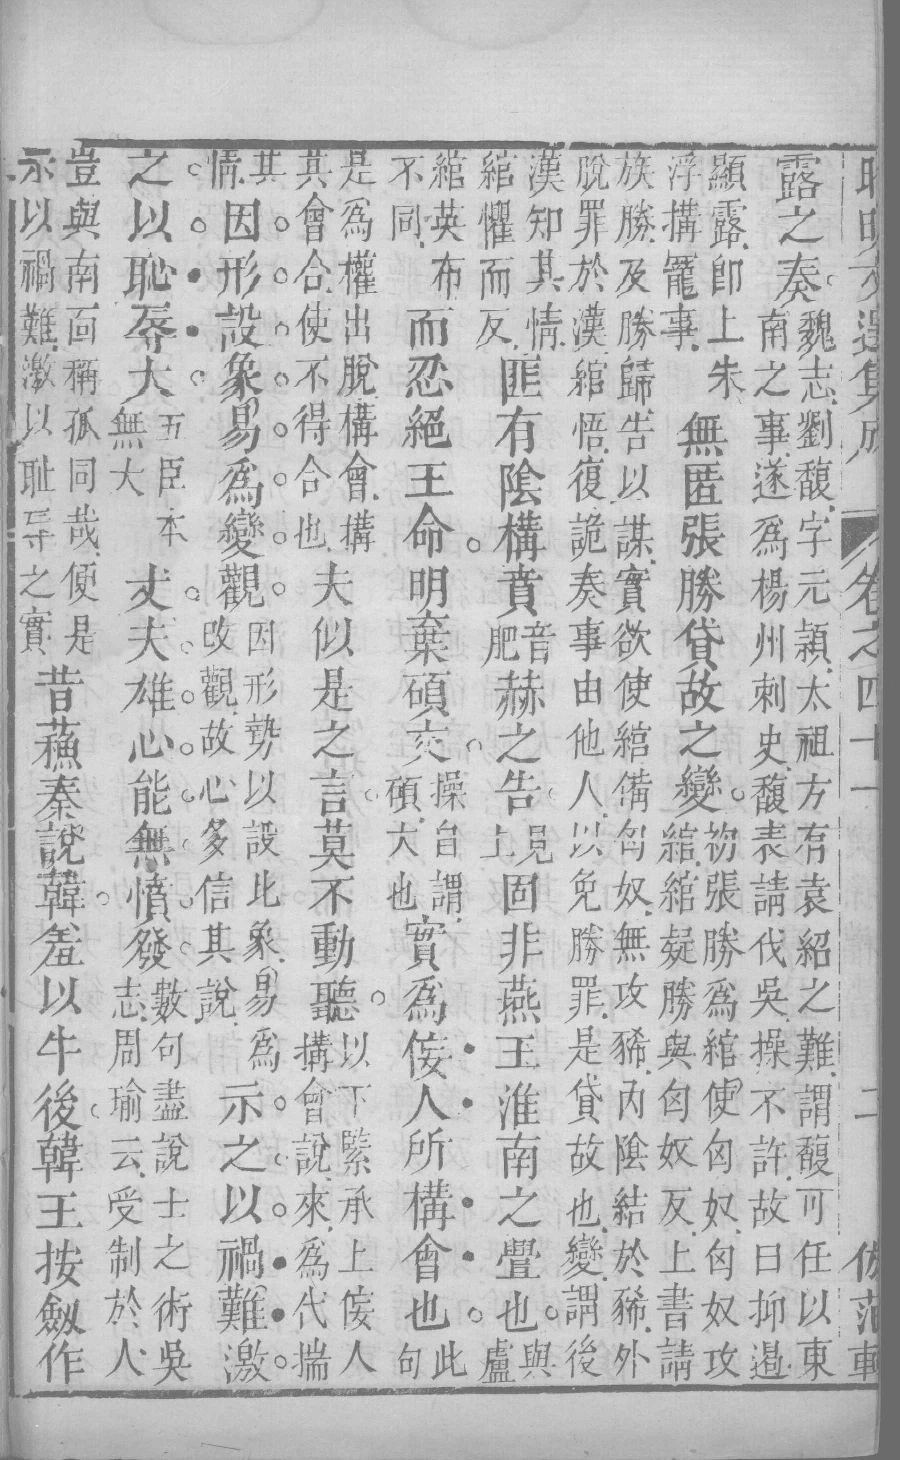 昭明文選集成 卷之四十一 二 倣范軒
露之奏
魏志劉馥字元潁太祖方有袁紹之難謂馥可任以東
南之事遂爲楊州刺史馥表請代吳操不許故曰抑遏
顯露卽上朱
浮搆寵事
無匿張勝貸故之變
初張勝爲綰使匈奴匈奴攻
綰綰疑勝與匈奴反上書請
族勝及勝歸告以謀實欲使綰備匈奴無攻豨內陰結於豨外
脫罪於漢綰悟復詭奏事由他人以免勝罪是貸故也變謂後
漢知其情
綰懼而反
匪有陰構賁
音
肥
赫之告
見
上
固非燕王淮南之舋也
與
盧
綰英布
不同
而忍絕王命明棄碩交
操自謂
碩大也
實爲佞人所構會也
此
句
是爲權出脫構會搆
其會合使不得合也
夫似是之言莫不動聽
以下緊承上佞人
搆會說來爲代揣
其
情
因形設象易爲變觀
因形勢以設此象易爲
改觀故心多信其說
示之以禍難激
之以恥辱大
五臣本
無大
丈夫雄心能無憤發
數句盡說士之術吳
志周瑜云受制於人
豈與南面稱孤同哉便是
示以禍難激以耻辱之實
昔蘓秦說韓羞以牛後韓王按劔作